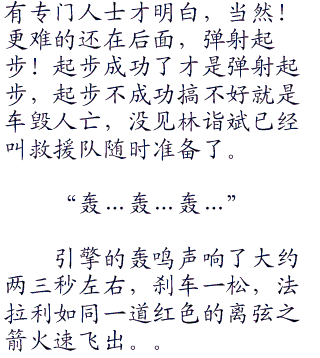 有专门人士才明白，当然！
更难的还在后面，弹射起
步！起步成功了才是弹射起
步，起步不成功搞不好就是
车毁人亡，没见林诣斌已经
叫救援队随时准备了。
“轰…轰…轰…”
引擎的轰鸣声响了大约
两三秒左右，刹车一松，法
拉利如同一道红色的离弦之
箭火速飞出。。